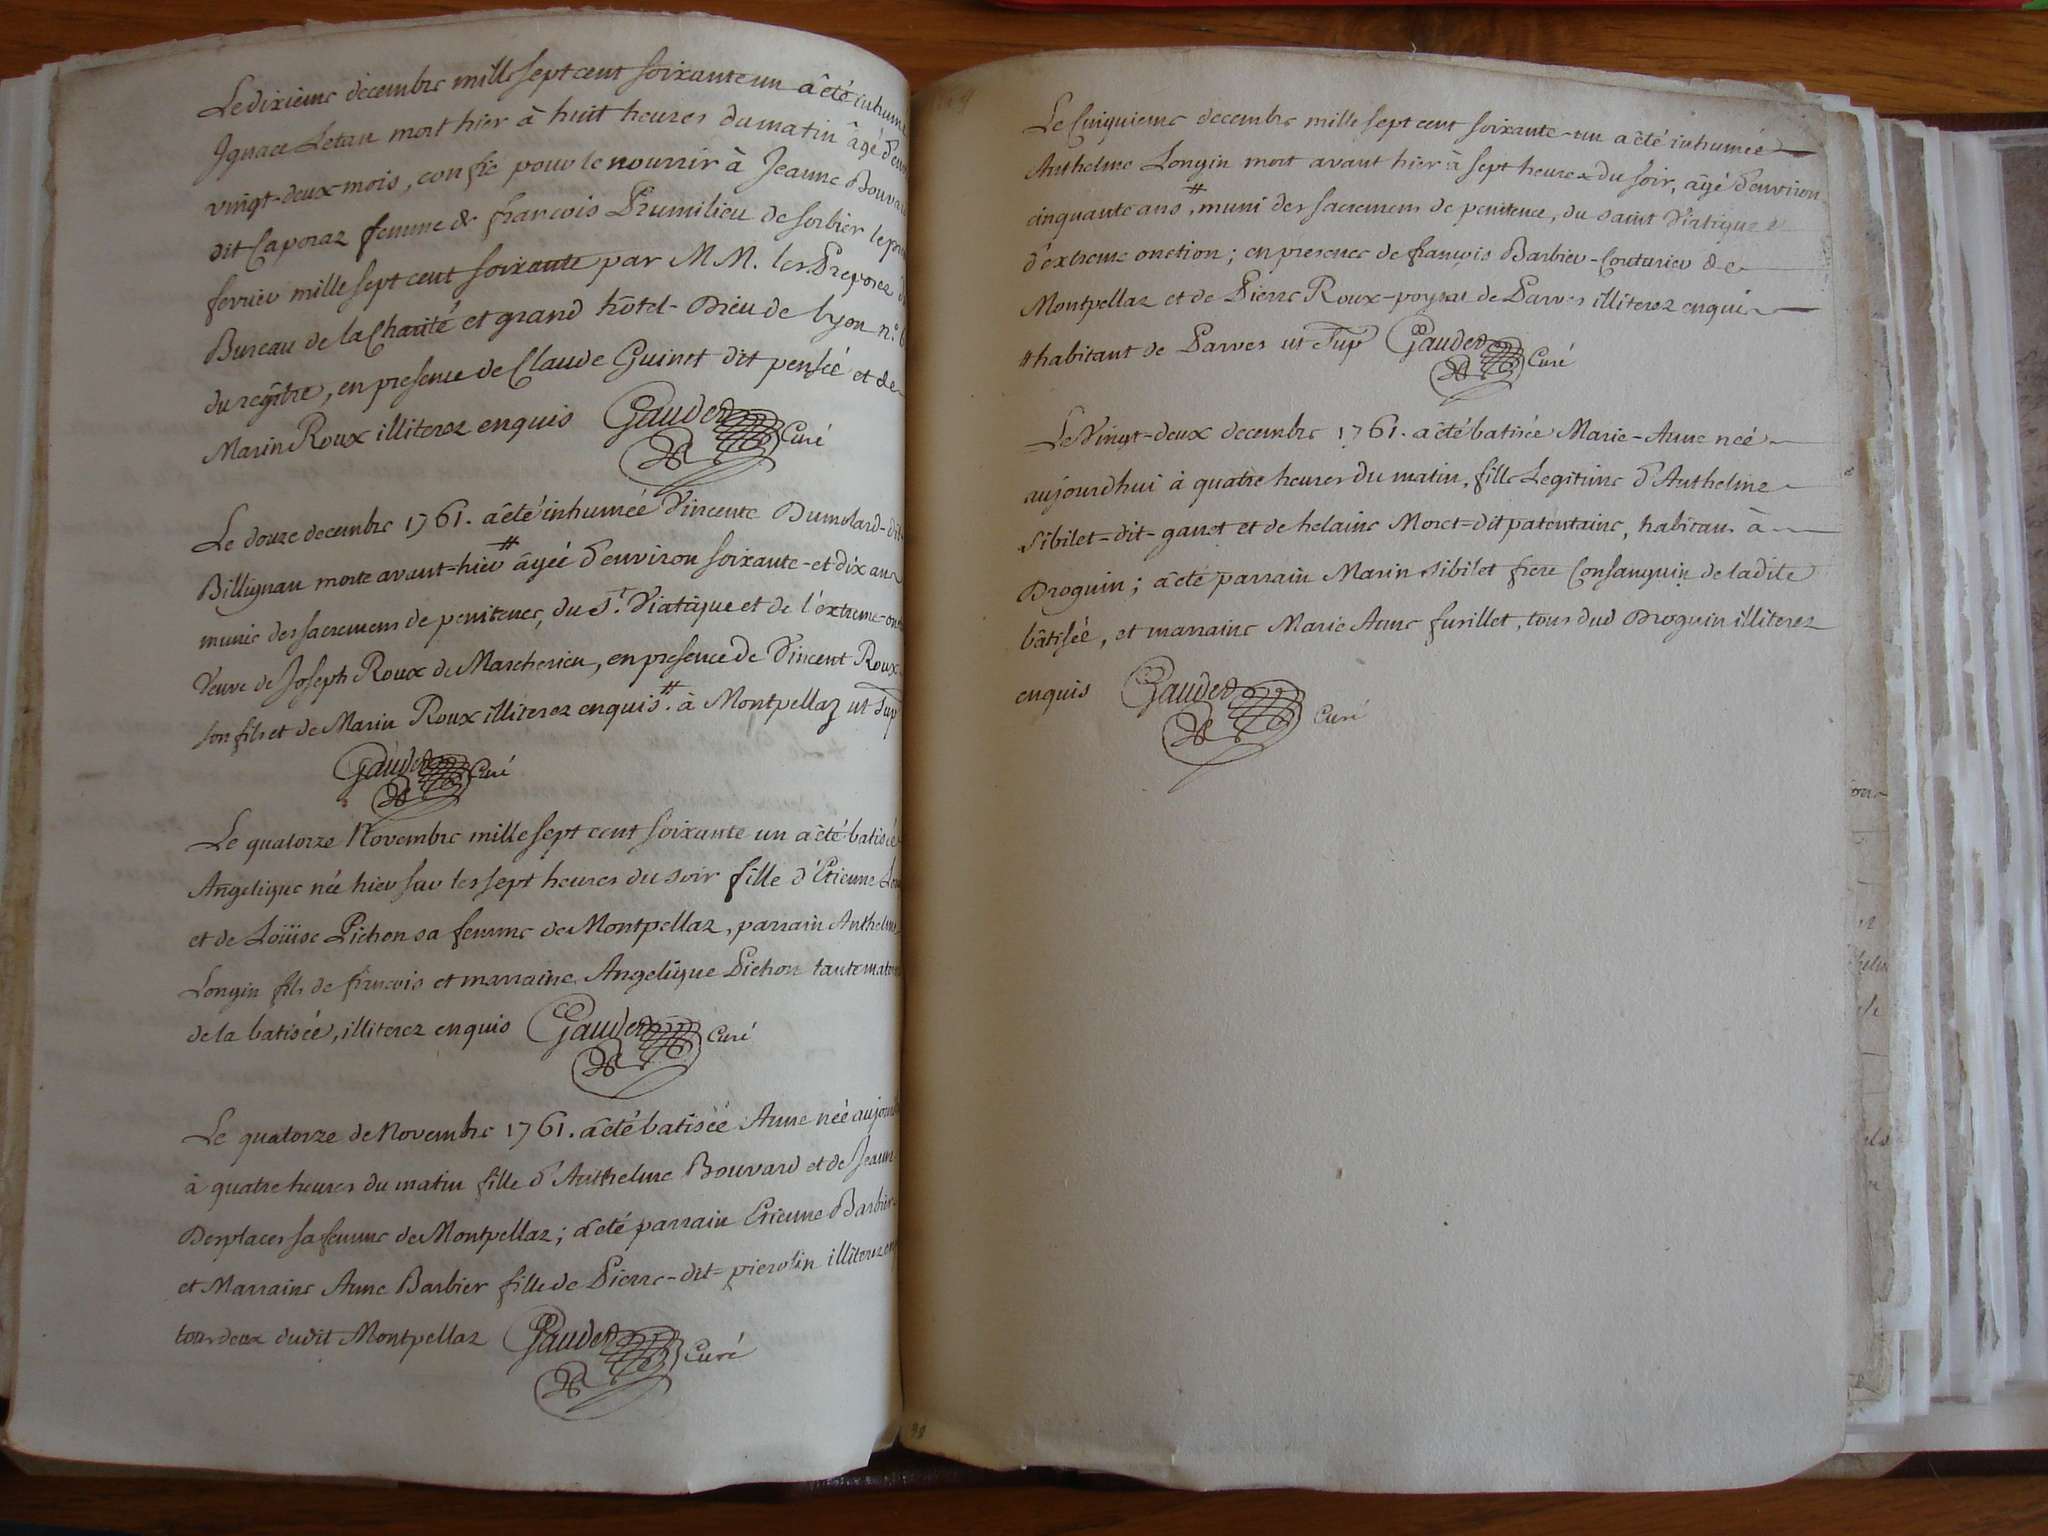 Le dixieme decembre mille sept cent soixante un a êté inhumé
Ignace Letan mort hier à huit heures du matin âgé
vingt-deux mois, confié pour le nourrir à Jeanne
dit Caporaz femme de françois Prumilieu de sorbier le
fevrier mille sept cent soixante par M M. les Preposez
Bureau de la Charité et grand hôtel-Dieu de Lyon n.°
du regître, en presence de Claude Guinet dit pensée et de
Marin Roux illiterez enquis Gauder Curé
Le douze decembre 1761. a êté inhumée Vincente Dumolard-dit-
Billignan morte avant=hier # âgée d'environ soixante-et dix ans
munie des sacremens de penitence, du S.t Viatique et de l'extreme-
Veuve de Joseph Roux de Marcherieu, en presence de Vincent Roux
son fils et de Marin Roux illiterez enquis. # à Montpellaz ut sup
Gauder Curé
Le quatorze Novembre mille sept cent soixante un a êté batisée
Angelique née hier sur les sept heures du soir fille d'Etienne
et de Loüise Pichon sa femme de Montpellaz, parrain Anthelme
Longin fils de françois et marraine Angelique Pichon tante
de la batisée, illiterez enquis Gauder Curé
Le quatorze de Novembre 1761. a êté batisée Anne née
à quatre heures du matin fille d'Anthelme Bouvard et de Jeanne
Desplaces sa femme de Montpellaz; a été parrain Etienne Barbier
et Marraine Anne Barbier fille de Pierre-dit=pierolin illiterez
tous deux dudit Montpellaz Gauder Curé
Le Cinquieme decembre mille sept cent soixante-un a êté inhumée
Anthelme Longin mort avant hier à sept heures du soir, âgé d'environ
cinquante ans, # muni des sacremens de penitence, du saint Viatique &
d'extreme onction; en presence de françois Barbier-Couturier de
Montpellaz et de Pierre Roux-poysat de Parves illiterez enquis
# habitant de Parves ut sup Gauder Curé
Le Vingt-deux decembre 1761. a êté batisée Marie-Anne née
aujourdhui à quatre heures du matin, fille Legitime d'Anthelme
Sibilet=dit-ganet et de helaine Moret=dit patentaine, habitans à
Droguin; a êté parrain Marin sibilet frere Consanguin de ladite
bâtisée, et marraine Marie Anne fusillet, tous dud Droguin illiterez
enquis Gauder Curé